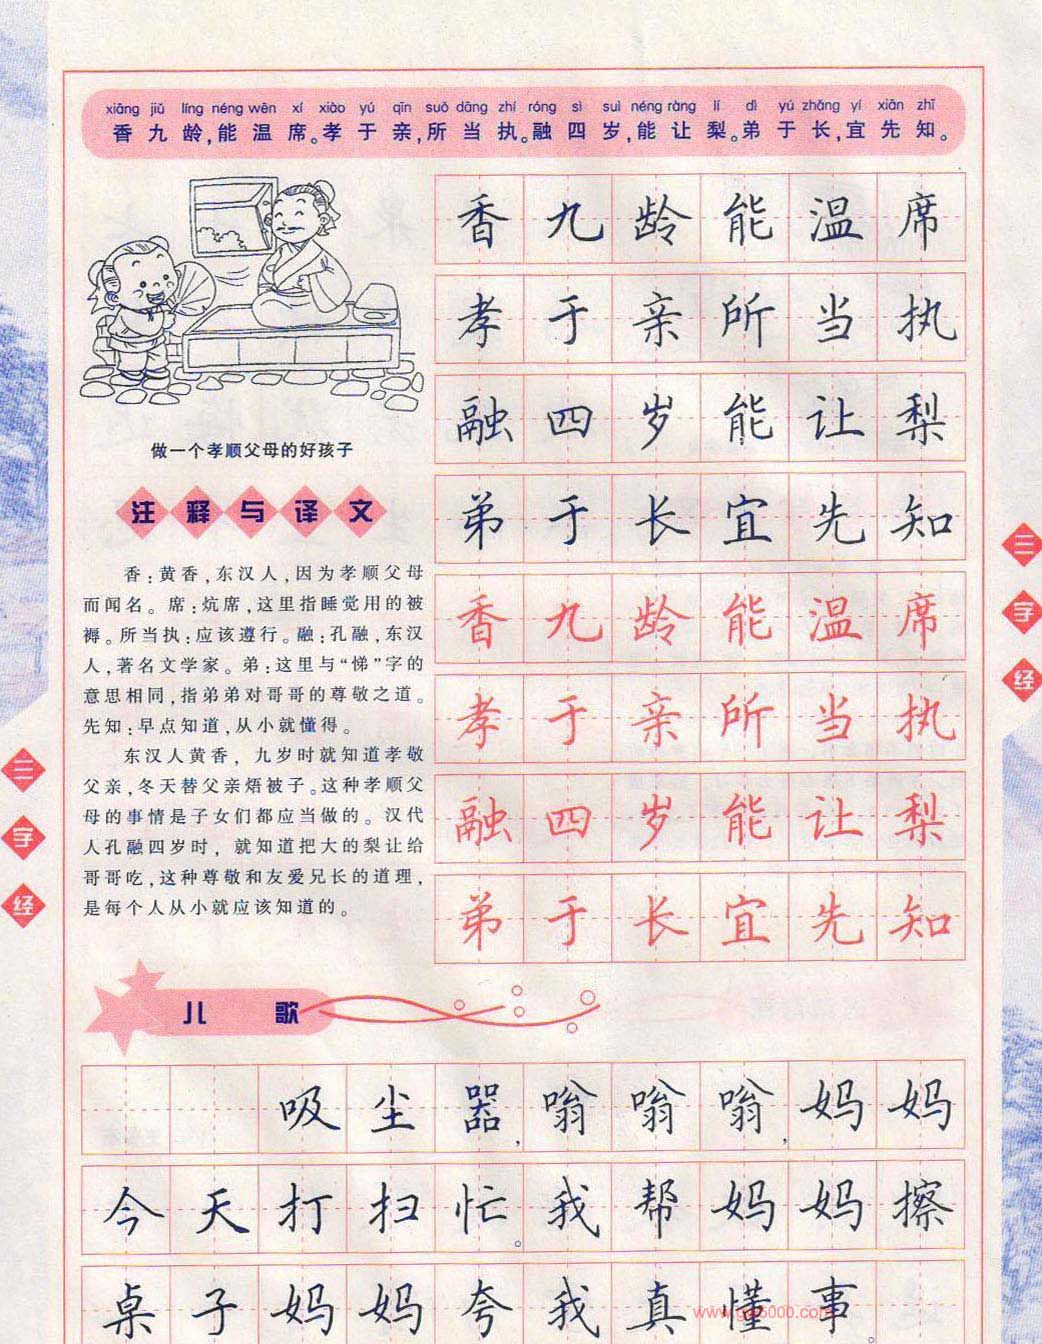 xiāng jiǔ líng néng wēn xí xiào yú qīn suǒ dāng zhí róng sì suì néng ràng lí dì yú zhǎng yí xiān zhī
香九龄,能温席。孝于亲,所当执。融四岁,能让梨。弟于长,宜先知。
做一个孝顺父母的好孩子
注释与译文
香:黄香,东汉人,因为孝顺父母
而闻名。席:炕席,这里指睡觉用的被
褥。所当执:应该遵行。融:孔融,东汉
人,著名文学家。弟:这里与“悌”字的
意思相同,指弟弟对哥哥的尊敬之道。
先知:早点知道,从小就懂得。
东汉人黄香,九岁时就知道孝敬
父亲,冬天替父亲焐被子。这种孝顺父
母的事情是子女们都应当做的。汉代
人孔融四岁时,就知道把大的梨让给
哥哥吃,这种尊敬和友爱兄长的道理,
是每个人从小就应该知道的。
香九龄能温席
孝于亲所当执
融四岁能让梨
弟于长宜先知
香九龄能温席
孝于亲所当执
融四岁能让梨
弟于长宜先知
三字经
三字经
儿歌
吸尘器,嗡嗡嗡,妈妈
今天打扫忙。我帮妈妈擦
桌子妈妈夸我真懂事。